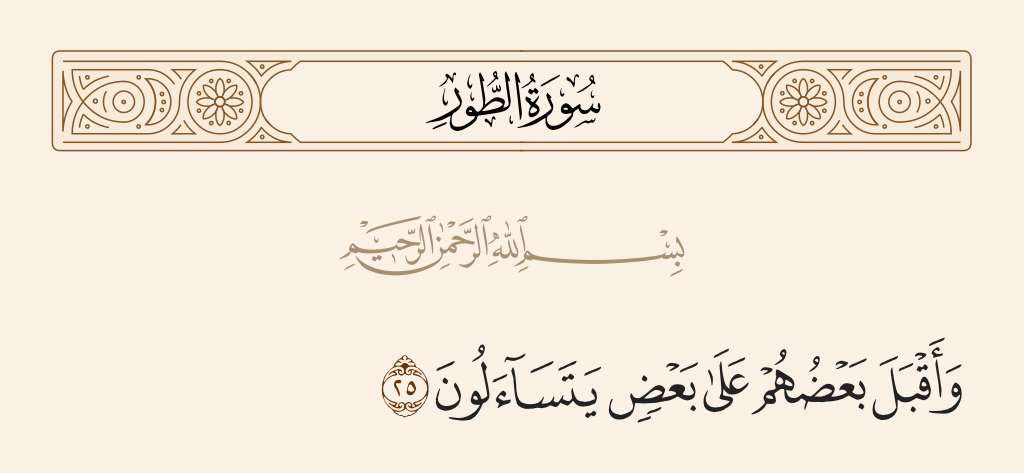 سُورَةُ الطُّورِ
بِسْمِ ٱللَّهِ ٱلرَّحْمَٰنِ ٱلرَّحِيمِ
وَأَقْبَلَ بَعْضُهُمْ عَلَىٰ بَعْضٍ يَتَسَآءَلُونَ ٢٥